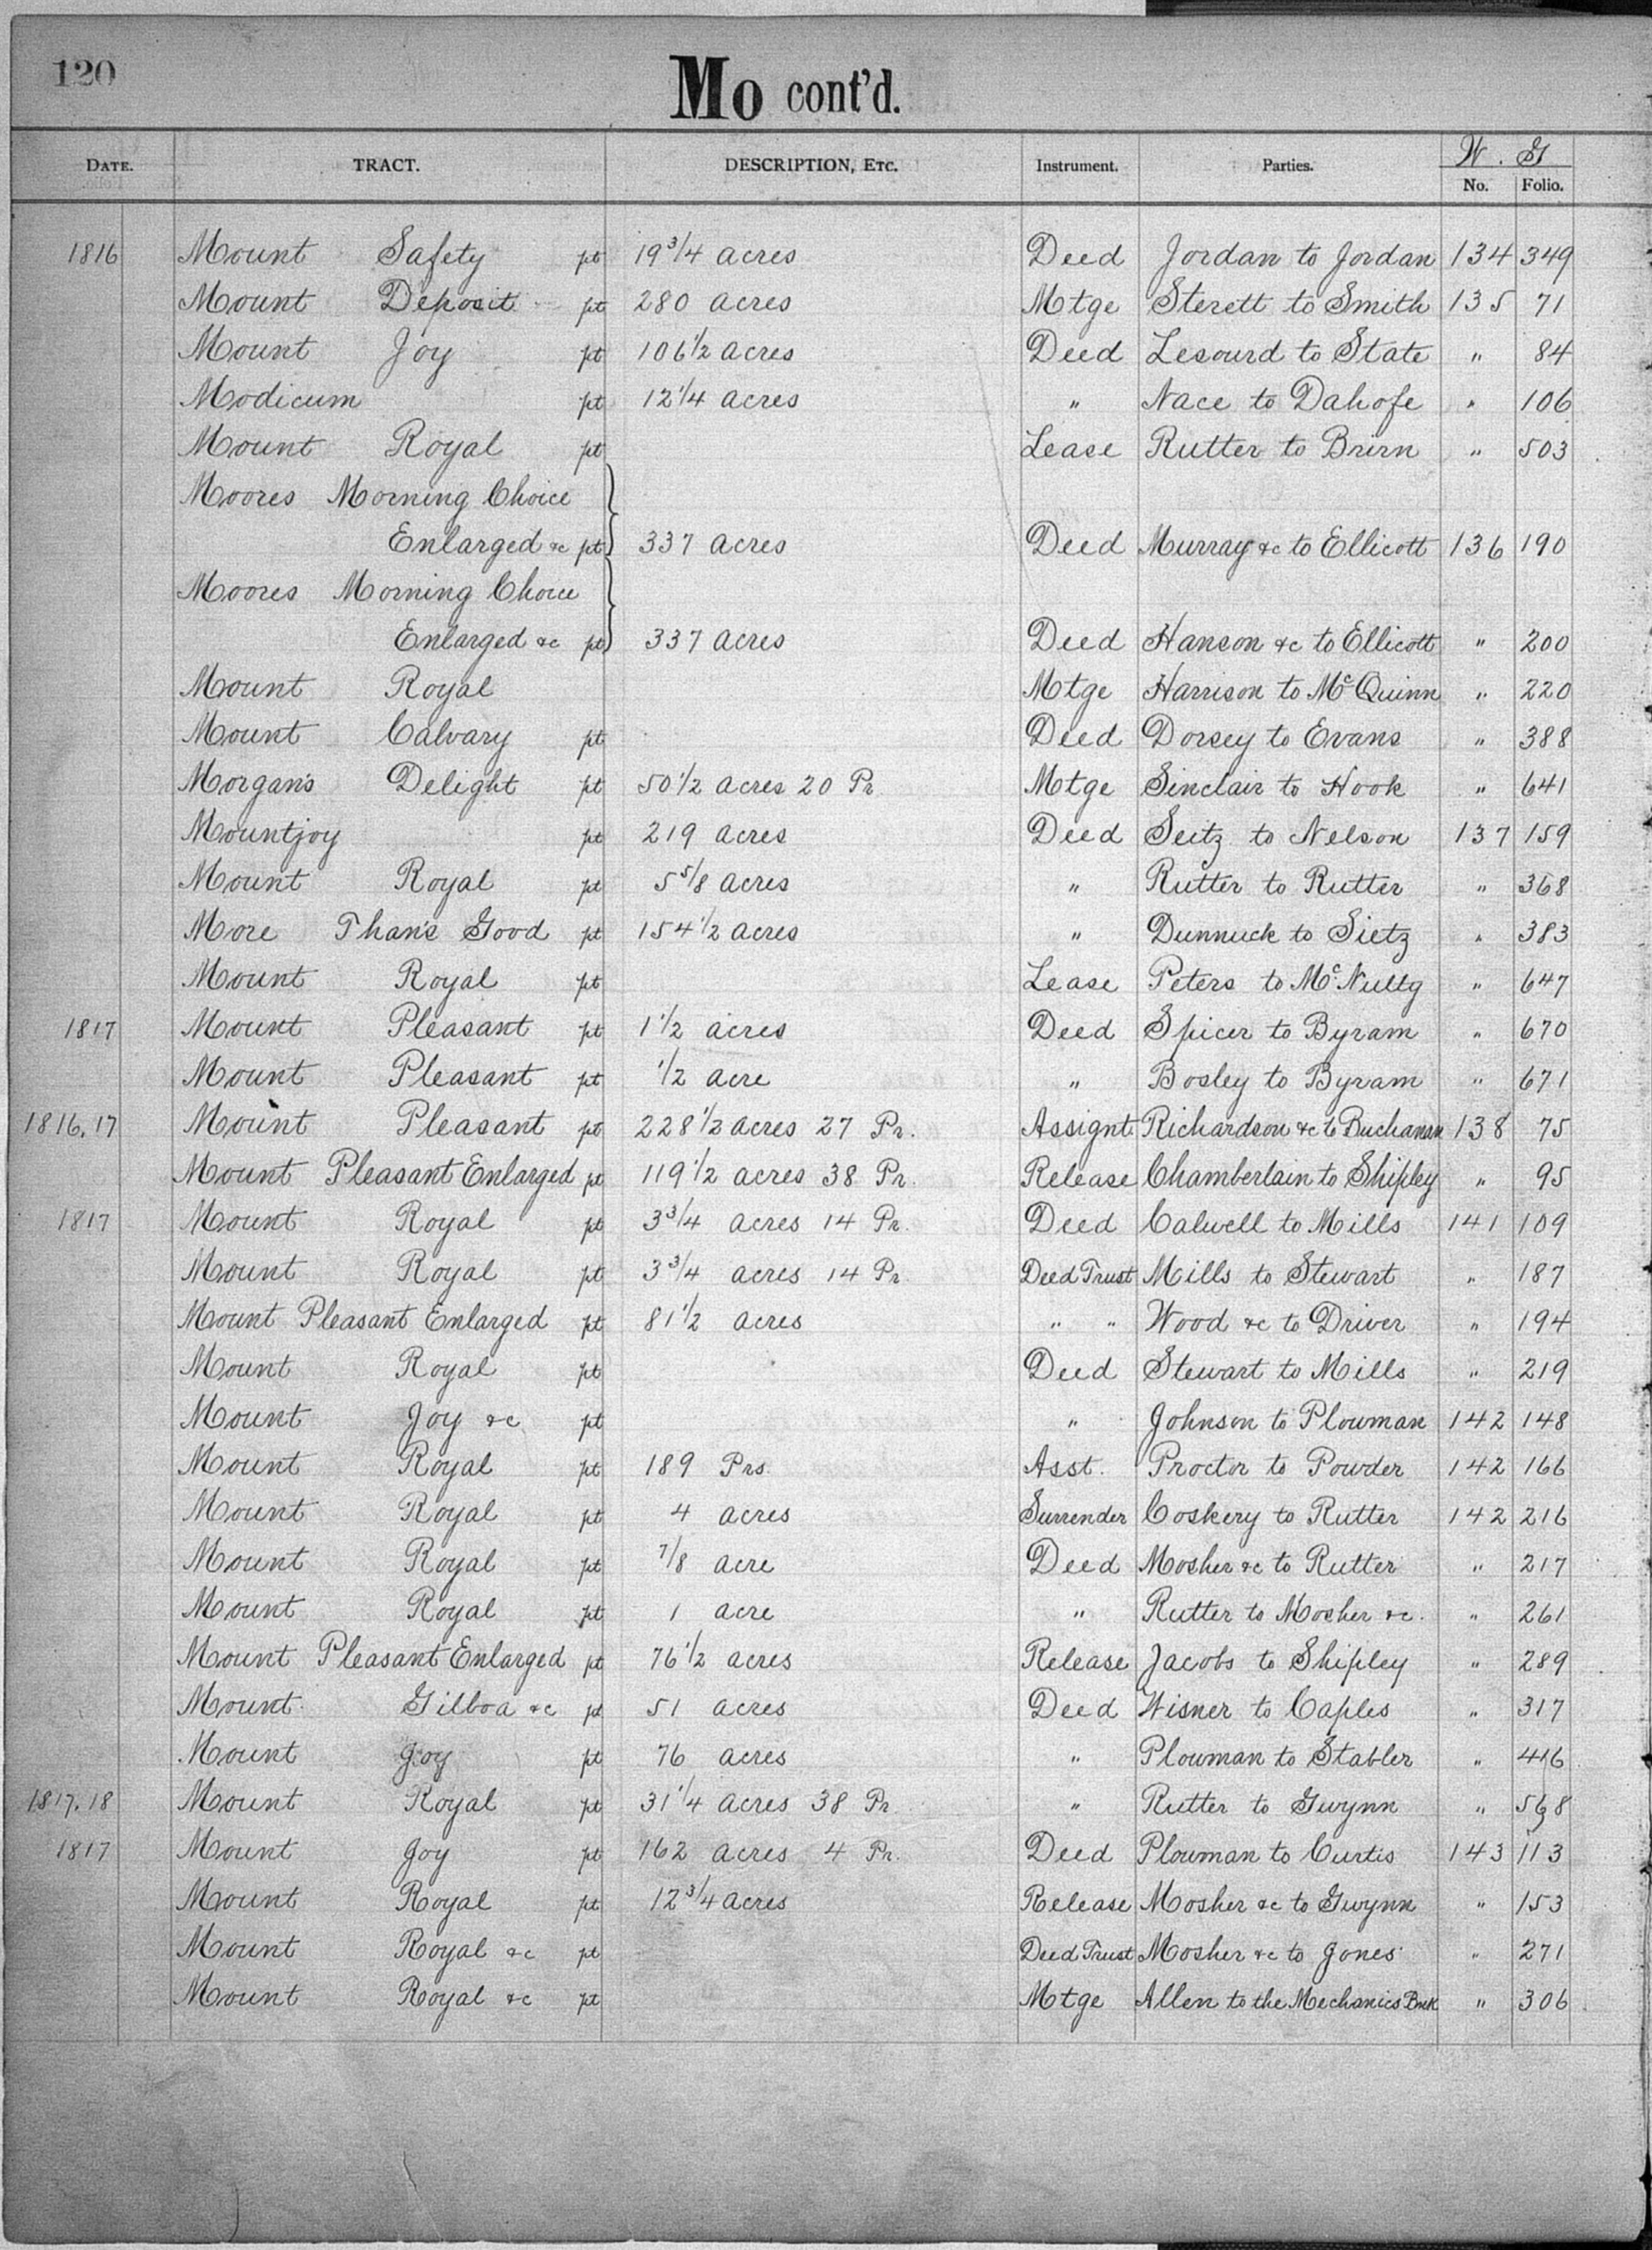 120
Mo cont'd.
DATE. TRACT. DESCRIPTION, ETC. Instrument. Parties. W. G
No. Folio.
1816 Mount Safety pt 19 3/4 acres Deed Jordan to Jordan 134 349
Mount Deposit pt 280 acres Mtge Sterett to Smith 135 71
Mount Joy pt 106 1/2 acres Deed Lesourd to State " 84
Modicum pt 12 1/4 acres " Nace to Dahofe " 106
Mount Royal pt Lease Rutter to Brirn " 503
Moores Morning Choice
Enlarged &c pt 337 acres Deed Murray &c to Ellicott 136 190
Moores Morning Choice
Enlarged &c pt 337 acres Deed Hanson &c to Ellicott " 200
Mount Royal Mtge Harrison to McQuinn " 220
Mount Calvary pt Deed Dorsey to Evans " 388
Morgan's Delight pt 50 1/2 acres 20 Pr Mtge Sinclair to Hook " 641
Mountjoy pt 219 acres Deed Seitz to Nelson 137 159
Mount Royal pt 5 5/8 acres " Rutter to Rutter " 368
More Than's Good pt 154 1/2 acres " Dunnuck to Sietz " 383
Mount Royal pt Lease Peters to McNulty " 647
1817 Mount Pleasant pt 1 1/2 acres Deed Spicer to Byram " 670
Mount Pleasant pt 1/2 acre " Bosley to Byram " 671
1816,17 Mount Pleasant pt 228 1/2 acres 27 Pr. Assignt Richardson &c to Buchanan 138 75
Mount Pleasant Enlarged pt 119 1/2 acres 38 Pr. Release Chamberlain to Shipley " 95
1817 Mount Royal pt 3 3/4 acres 14 Pr. Deed Calwell to Mills 141 109
Mount Royal pt 3 3/4 acres 14 Pr Deed Trust Mills to Stewart " 187
Mount Pleasant Enlarged pt 81 1/2 acres " " Wood &c to Driver " 194
Mount Royal pt Deed Stewart to Mills " 219
Mount Joy &c pt " Johnson to Plowman 142 148
Mount Royal pt 189 Prs. Asst. Proctor to Powder 142 166
Mount Royal pt 4 acres Surrender Coskery to Rutter 142 216
Mount Royal pt 7/8 acre Deed Mosher &c to Rutter " 217
Mount Royal pt 1 acre " Rutter to Mosher &c. " 261
Mount Pleasant Enlarged pt 76 1/2 acres Release Jacobs to Shipley " 289
Mount Gilboa &c pt 51 acres Deed Wisner to Caples " 317
Mount Joy pt 76 acres " Plowman to Stabler " 416
1817.18 Mount Royal pt 31 1/4 acres 38 Pr. " Rutter to Gwynn "
1817 Mount Joy pt 162 acres 4 Pr. Deed Plowman to Curtis 143 113
Mount Royal pt 12 3/4 acres Release Mosher &c to Gwynn " 153
Mount Royal &c pt Deed Trust Mosher &c to Jones " 271
Mount Royal &c pt Mtge Allen to the Mechanics Bnk " 306